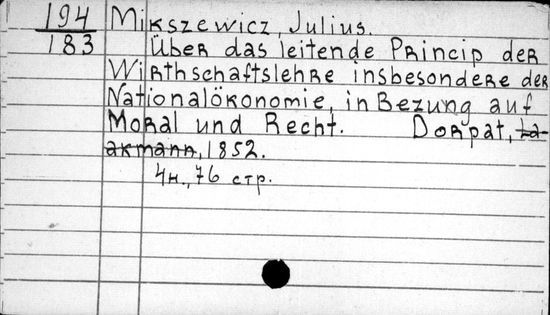 194 Mikszewicz, Julius.
183 Über das leitende Princip der
Wirthschaftslehre insbesondere der
Nationalökonomie, in Bezung auf
Moral und Recht. Dorpat, La-
akmann, 1852.
4н., 76 стр.